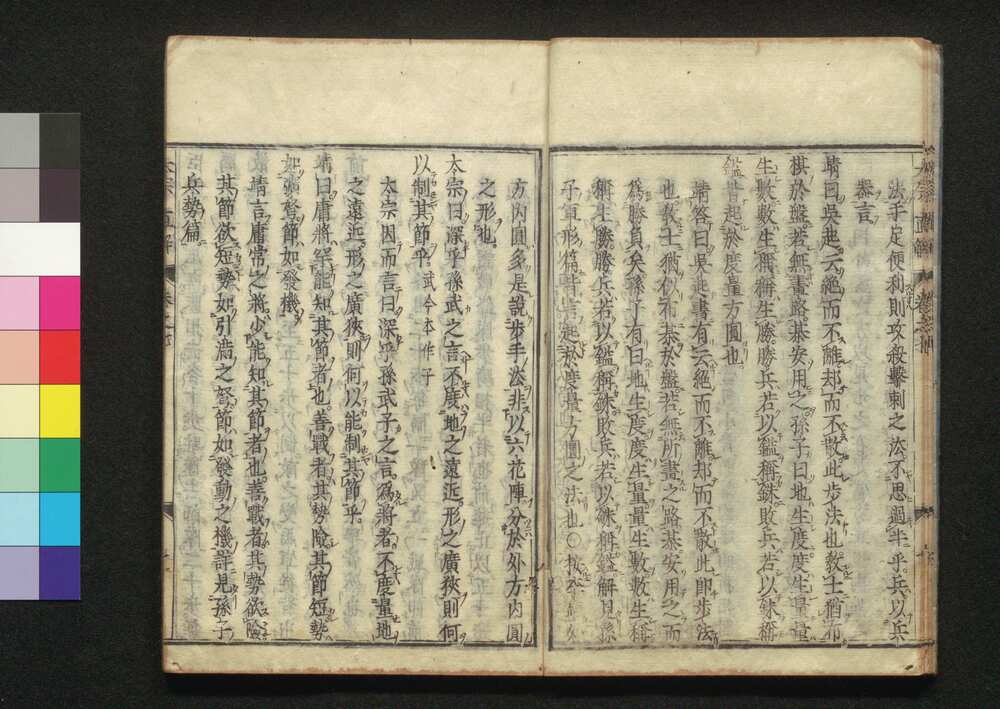 法手足便利則攻殺擊刺之法不思過半乎兵以兵
靖曰吳起云絕而不離却而不散此步法也教士猶布
棋於盤若無畫路棊安用之孫子曰地生度度生量量
生數數生稱稱生勝勝兵若以鎰稱銖敗兵若以銖稱
鎰皆起於度量方圓也
靖答曰吳起書有云絕而不離却而不散此即步法
也教士猶似布棊於盤若無所畫之路棊安用之而
為勝負矣孫子有曰地生度度生量量生數數生稱
稱生勝勝兵若以鎰稱銖敗兵若以銖稱鎰解見孫
子軍形篇皆起於度量方圓之法也○
方內圓多是說步手法非以六花陣分於外方內圓
之形也
太宗曰深乎孫武之言不度地之遠近形之廣狹則何
以制其節乎武今本作子
太宗因而言曰深乎孫武子之言為將者不度量地
之遠近形之廣狹則何以能制其節乎
靖曰庸將罕能知其節者也善戰者其勢險其節短勢
如彍弩節如發機
靖言庸常之將少能知其節者也善戰者其勢欲險
其節欲短勢如引滿之弩節如發動之機詳見孫子
兵勢篇